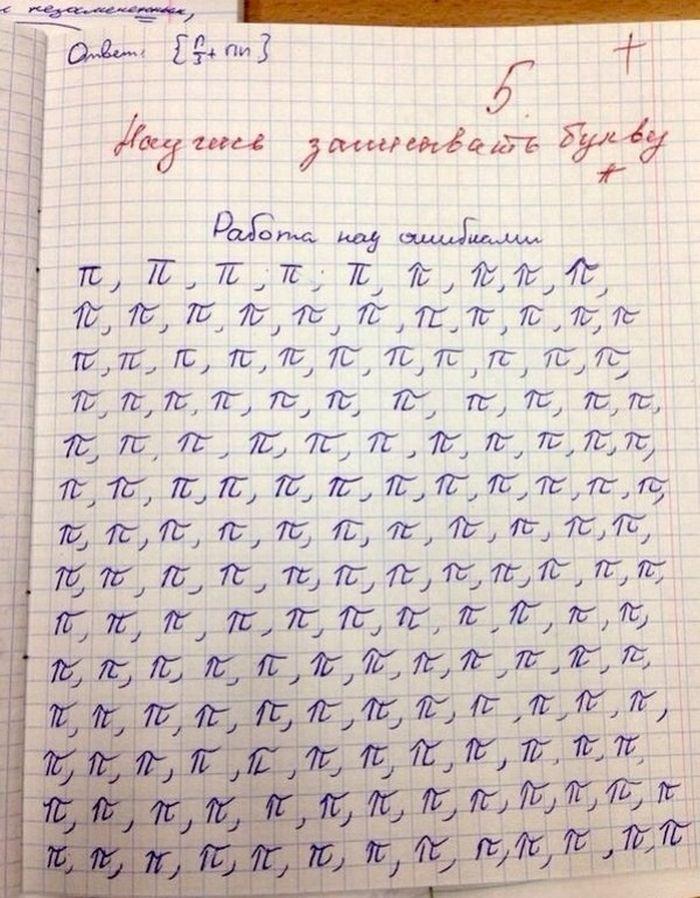 незамененных,
Ответ: {π/3 + πn}
5 +
Научись записывать букву
π
Работа над ошибками
π, π, π, π, π, π, π, π, π,
π, π, π, π, π, π, π, π, π, π, π
π, π, π, π, π, π, π, π, π, π, π,
π, π, π, π, π, π, π, π, π, π, π,
π, π, π, π, π, π, π, π, π, π, π,
π, π, π, π, π, π, π, π, π, π, π, π,
π, π, π, π, π, π, π, π, π, π, π,
π, π, π, π, π, π, π, π, π, π, π, π,
π, π, π, π, π, π, π, π, π, π, π,
π, π, π, π, π, π, π, π, π, π, π, π,
π, π, π, π, π, π, π, π, π, π, π, π,
π, π, π, π, π, π, π, π, π, π, π, π,
π, π, π, π, π, π, π, π, π, π, π, π, π
π, π, π, π, π, π, π, π, π, π, π, π, π